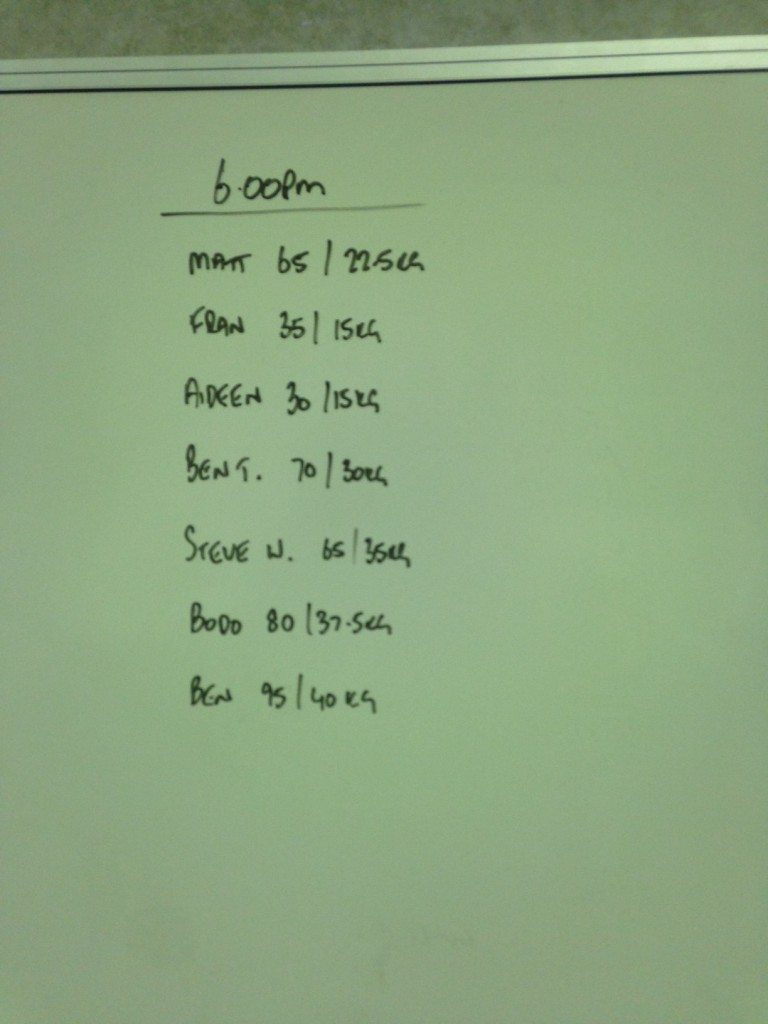 6.00Pm
MATT 65 / 22.5KG
FRAN 35 / 15KG
AIDEEN 30 / 15KG
BEN T. 70 / 30KG
STEVE W. 65 / 35KG
BODO 80 / 37.5KG
BEN 95 / 40KG